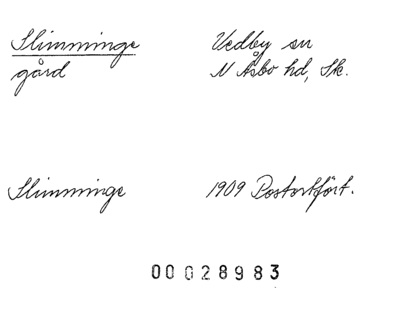 Slimminge Vedby sn
gård N Åsbo hd, Sk.
Slimminge 1909 Postortsfört.
00028983